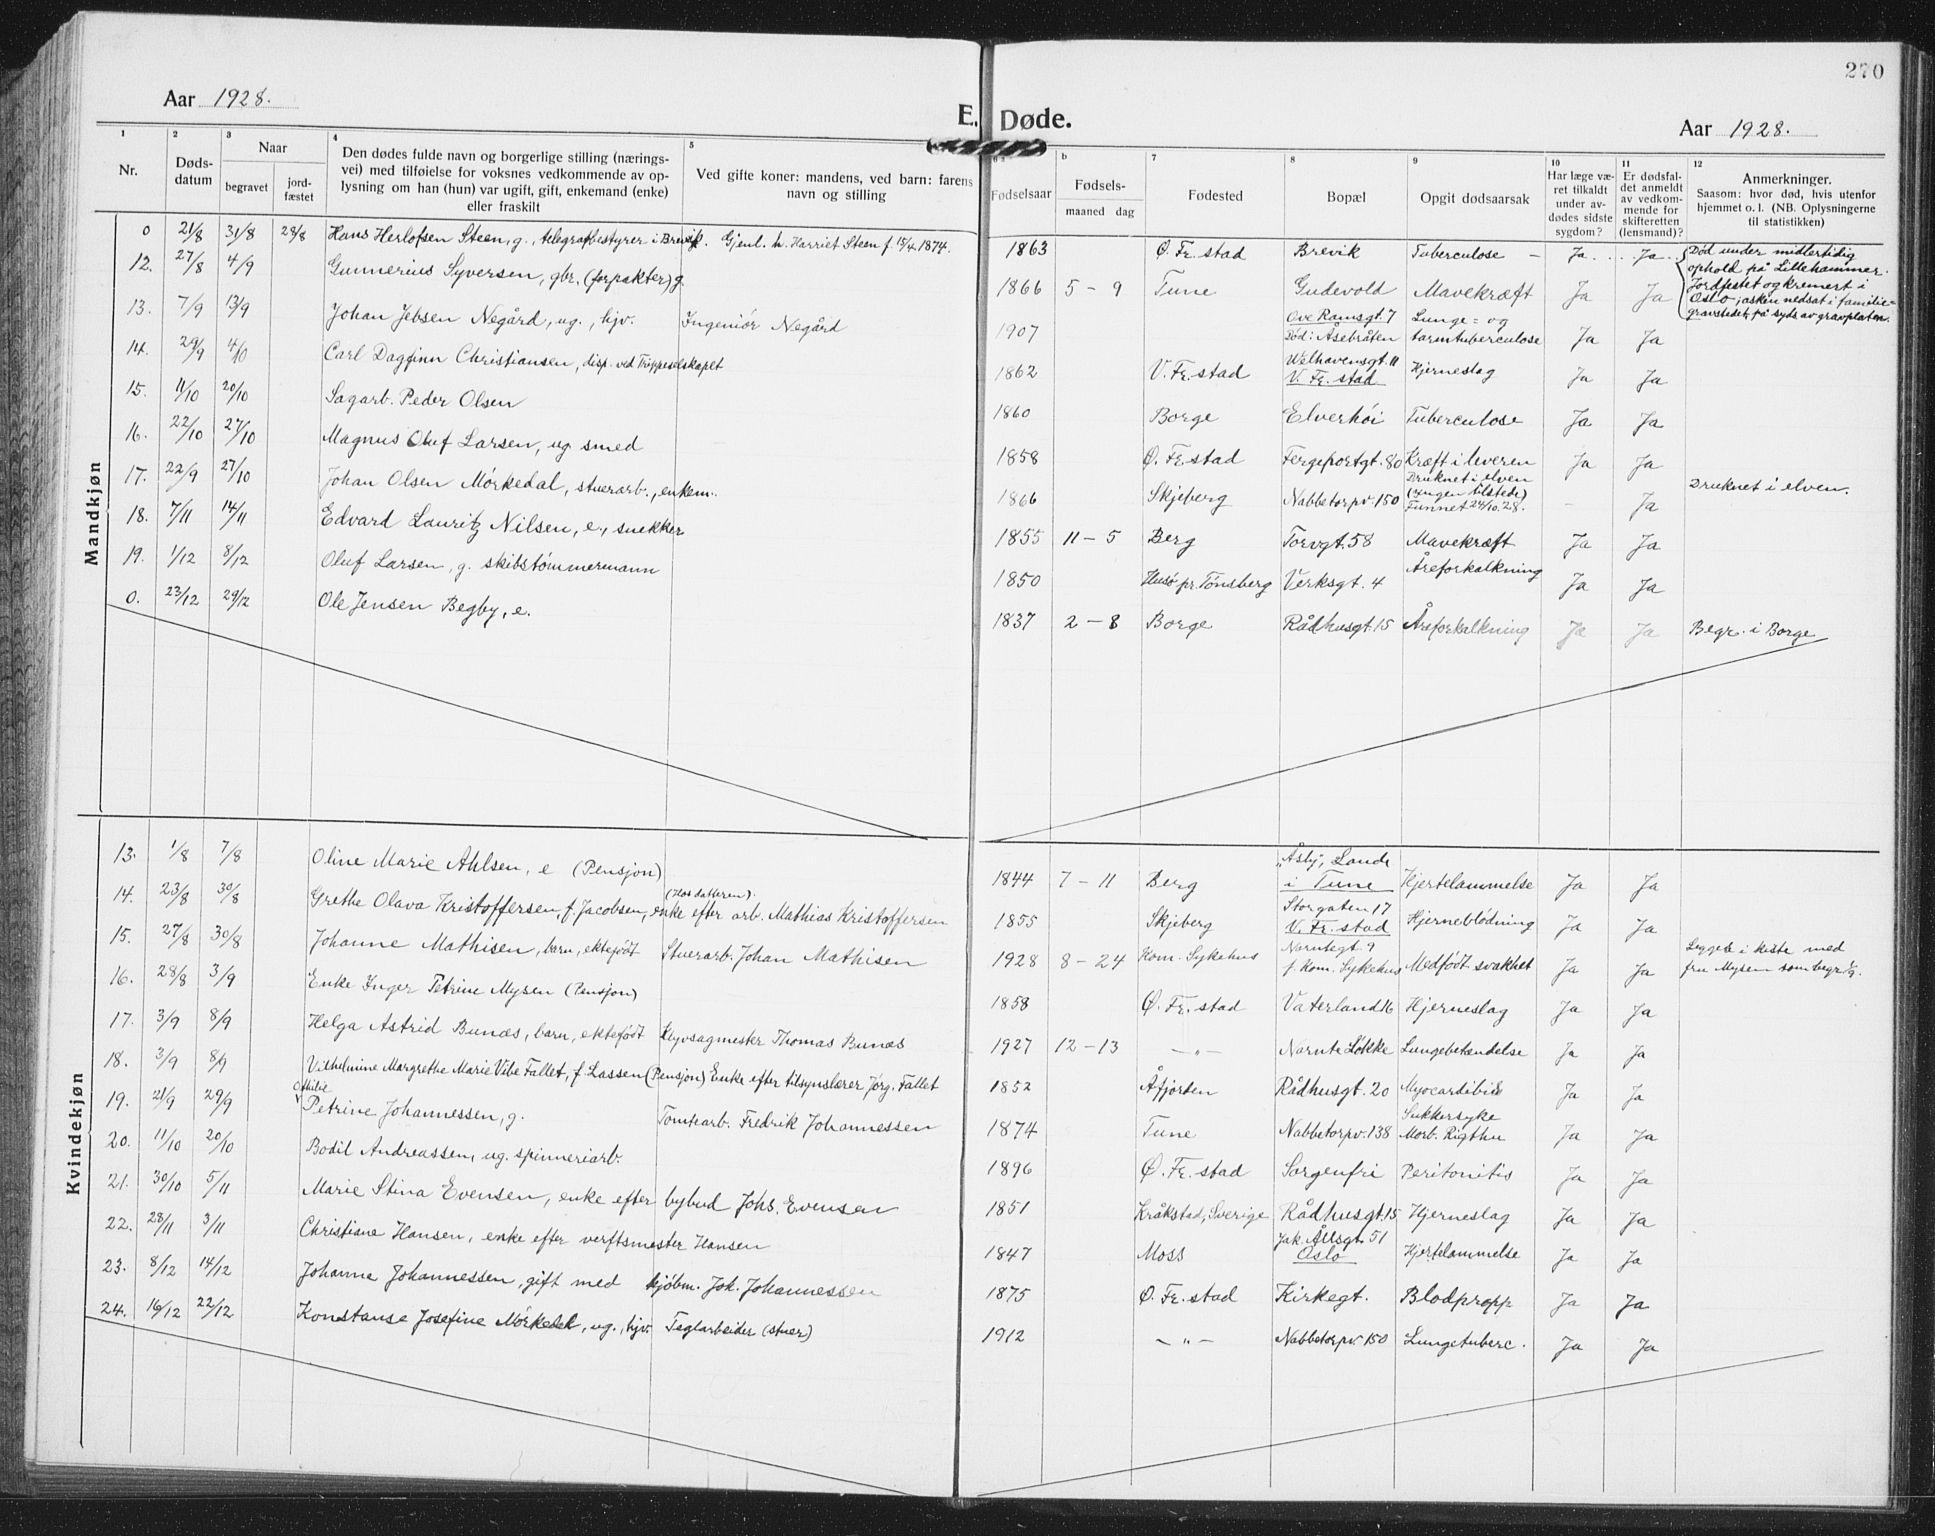 270
Aar 1928.
E. Døde.
Aar 1928.
1 2 3 4 5 6 a b 7 8 9 10 11 12
Nr.
Døds-
datum
Naar
begravet
jord-
fæstet
Den dødes fulde navn og borgerlige stilling (nærings-
vei) med tilføielse for voksnes vedkommende av op-
lysning om han (hun) var ugift, gift, enkemand (enke)
eller fraskilt
Ved gifte koner: mandens, ved barn: farens
navn og stilling
Fødselsaar
Fødsels-
maaned dag
Fødested
Bopæl
Opgit dødsaarsak
Har læge væ-
ret tilkaldt
under av-
dødes sidste
sygdom?
Er dødsfal-
det anmeldt
av vedkom-
mende for
skifteretten
(lensmand)?
Anmerkninger.
Saasom: hvor død, hvis utenfor
hjemmet o. l. (NB. Oplysningerne
til statistikken)
Mandkjøn
0 21/8 31/8 28/8 Hans Herlofsen Steen, g., telegrafbestyrer i Brevik. Gjenl. h. Harriet Steen f. 15/4 1874. 1863 Ø. Fr. stad Brevik Tuberculose – Ja Ja
Død under midlertidig
ophold på Lillehammer.
Jordfestet og kremert i
Oslo, asken nedsat i familie=
gravstedet på syds av gravplaten.
12. 27/8 4/9 Gunnerius Syversen, gbr. (forpakter) g. 1866 5 – 9 Tune Gudevold Mavekræft Ja Ja
13. 7/9 13/9 Johan Jebsen Negård, ug., hjv. Ingeniør Negård 1907 Ove Ramsgt. 7 Lunge= og
Død i Åsebråten tarmtuberculose Ja Ja
14. 29/9 4/10 Carl Dagfinn Christiansen, disp. ved Trippeselskapet 1862 V. Fr. stad Welhavensgt. 11
V. Fr. stad Hjerneslag Ja Ja
15. 11/10 20/10 Sagarb. Peder Olsen 1860 Borge Elverhøi Tuberculose Ja Ja
16. 22/10 27/10 Magnus Oluf Larsen, ug. smed 1858 Ø. Fr. stad Fergeportgt. 80 Kræft i leveren Ja Ja
17. 22/9 27/10 Johan Olsen Mørkedal, stuerarb., enkem. 1866 Skjeberg Nabbetorpv. 150 Druknet i elven
(ingen tilstede)
Funnet 24/10.28. – Ja Druknet i elven.
18. 7/11 14/11 Edvard Lauritz Nilsen, e., snekker 1855 11 – 5 Berg Torvgt. 58 Mavekræft Ja Ja
19. 1/12 8/12 Oluf Larsen, g. skibstømmermann 1850 Husø pr. Tønsberg Verksgt. 4 Åreforkalkning Ja Ja
0. 23/12 29/12 Ole Jensen Begby, e. 1837 2 – 8 Borge Rådhusgt. 15 Åreforkalkning Ja Ja Begr. i Borge
Kvindekjøn
13. 1/8 7/8 Oline Marie Ahlsen, e (Pensjon) 1844 7 – 11 Berg "Åsly", Lande
i Tune Hjertelammelse Ja Ja
14. 23/8 30/8 Grethe Olava Kristoffersen, f. Jacobsen, enke efter arb. Mathias Kristoffersen (Hos datteren). 1855 Skjeberg Storgaten 17
V. Fr. stad Hjerneblødning Ja Ja
15. 27/8 30/8 Johanne Mathisen, barn, ektefødt Stuerarb. Johan Mathisen 1928 8 – 24 Kom. Sykehus
f. Kom. Sykehus Medfødt svakhet Ja Ja
fru Mysen som begr.
16. 28/8 3/9 Enke Inger Petrine Mysen (Pensjon) 1858 Ø. Fr. stad Vaterland 16 Hjerneslag Ja Ja
17. 3/9 8/9 Helga Astrid Bunæs, barn, ektefødt Kløvsagmester Thomas Bunæs 1927 12 – 13 – „ – Nørnte Løkke Lungebetændelse Ja Ja
18. 3/9 8/9 Vilhelmine Margrethe Marie Vibe Fallet, f. Lassen (Pensjon) Enke efter tilsynslærer Jørg. Fallet 1852 Åfjorden Rådhusgt. 20 Ja Ja
19. 21/9 29/9 Ottilie
Petrine Johannessen, g. Tomtearb. Fredrik Johannessen 1874 Tune Nabbetorpv. 138 Sukkersyke
Morb. Ja Ja
20. 11/10 20/10 Bodil Andreassen, ug. spinneriarb. 1896 Ø. Fr. stad Sorgenfri Peritonitis Ja Ja
21. 30/10 5/11 Marie Stina Evensen, enke efter bybud Johs. Evensen 1851 Kråkstad, Sverige Rådhusgt. 15 Hjerneslag Ja Ja
22. 28/11 3/11 Christiane Hansen, enke efter verftsmester Hansen 1847 Moss Jak. Ållsgt. 51
Oslo Hjertelammelse Ja Ja
23. 8/12 14/12 Johanna Johannessen, gift med kjøbm. Joh. Johannessen 1875 Ø. Fr. stad Kirkegt. Blodpropp Ja Ja
24. 16/12 22/12 Konstanse Josefine Mørkedal, ug., hjv. Teglarbeider (stuer) 1912 – „ – Nabbetorpv. 150 Lungetuberc. Ja Ja